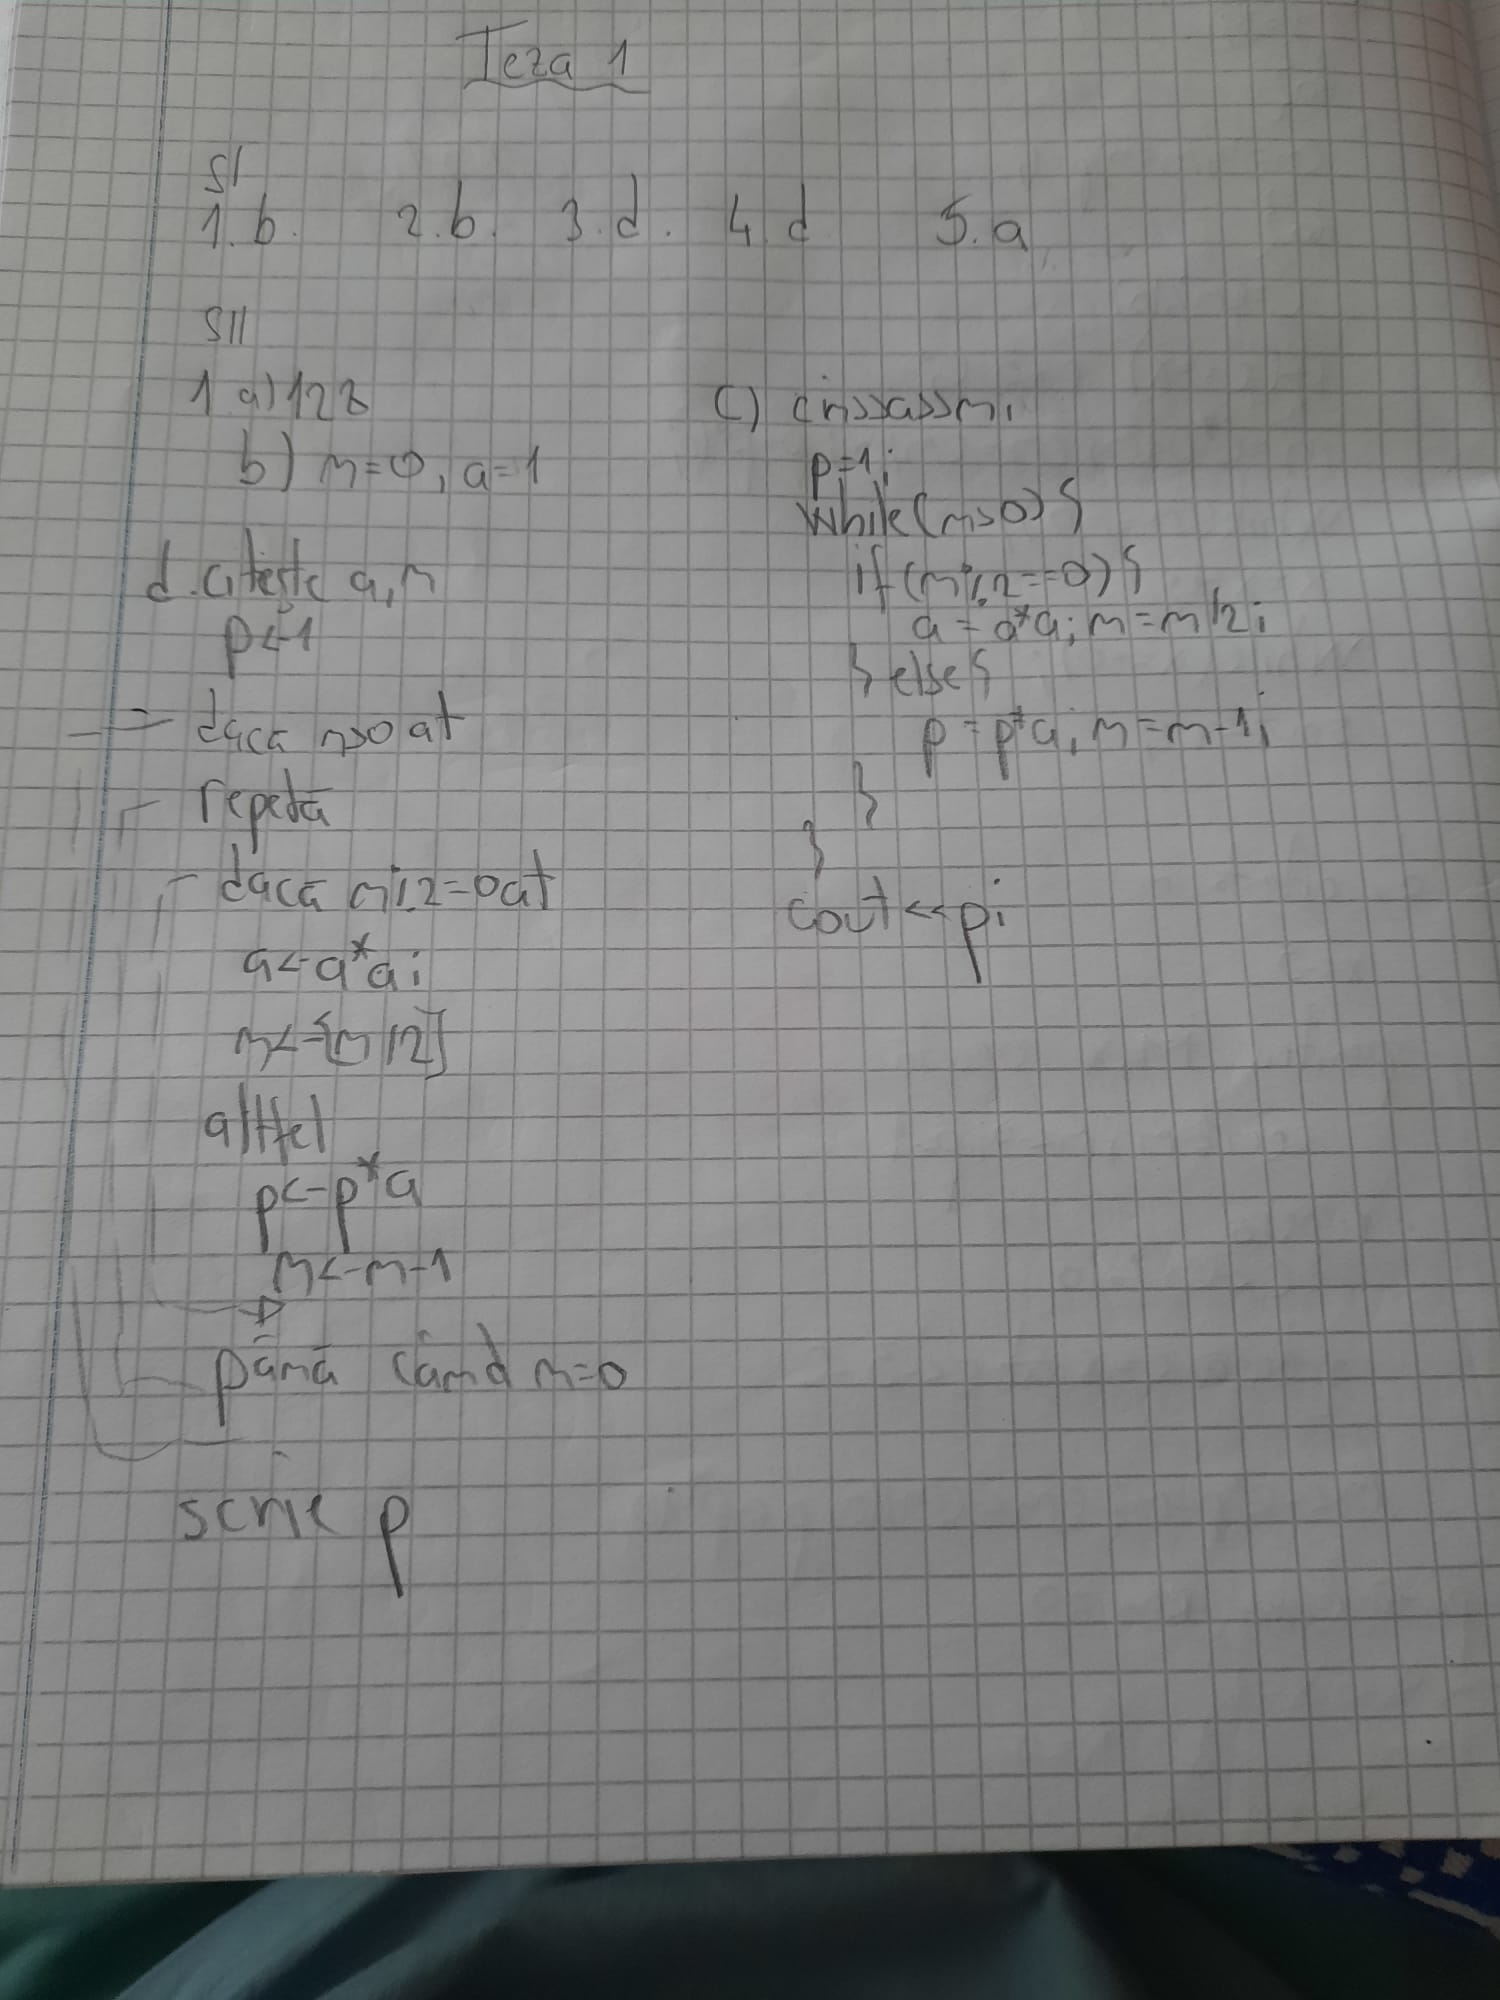 Teza 1
SI
1. b. 2. b. 3. d. 4 d 5. a
SII
1 a) 128
b) n=0, a=1
d. citește a, n
p<-1
daca n>0 at
repetă
dacă n%2=0 at
a<-a*a;
n<-[n/2]
altfel
p<-p*a
n<-n-1
până când n=0
scrie p
c) cin>>a>>n;
p=1;
while(n>0){
if(n%2==0){
a=a*a; n=n/2;
} else{
p=p*a; n=n-1;
}
}
cout<<p;